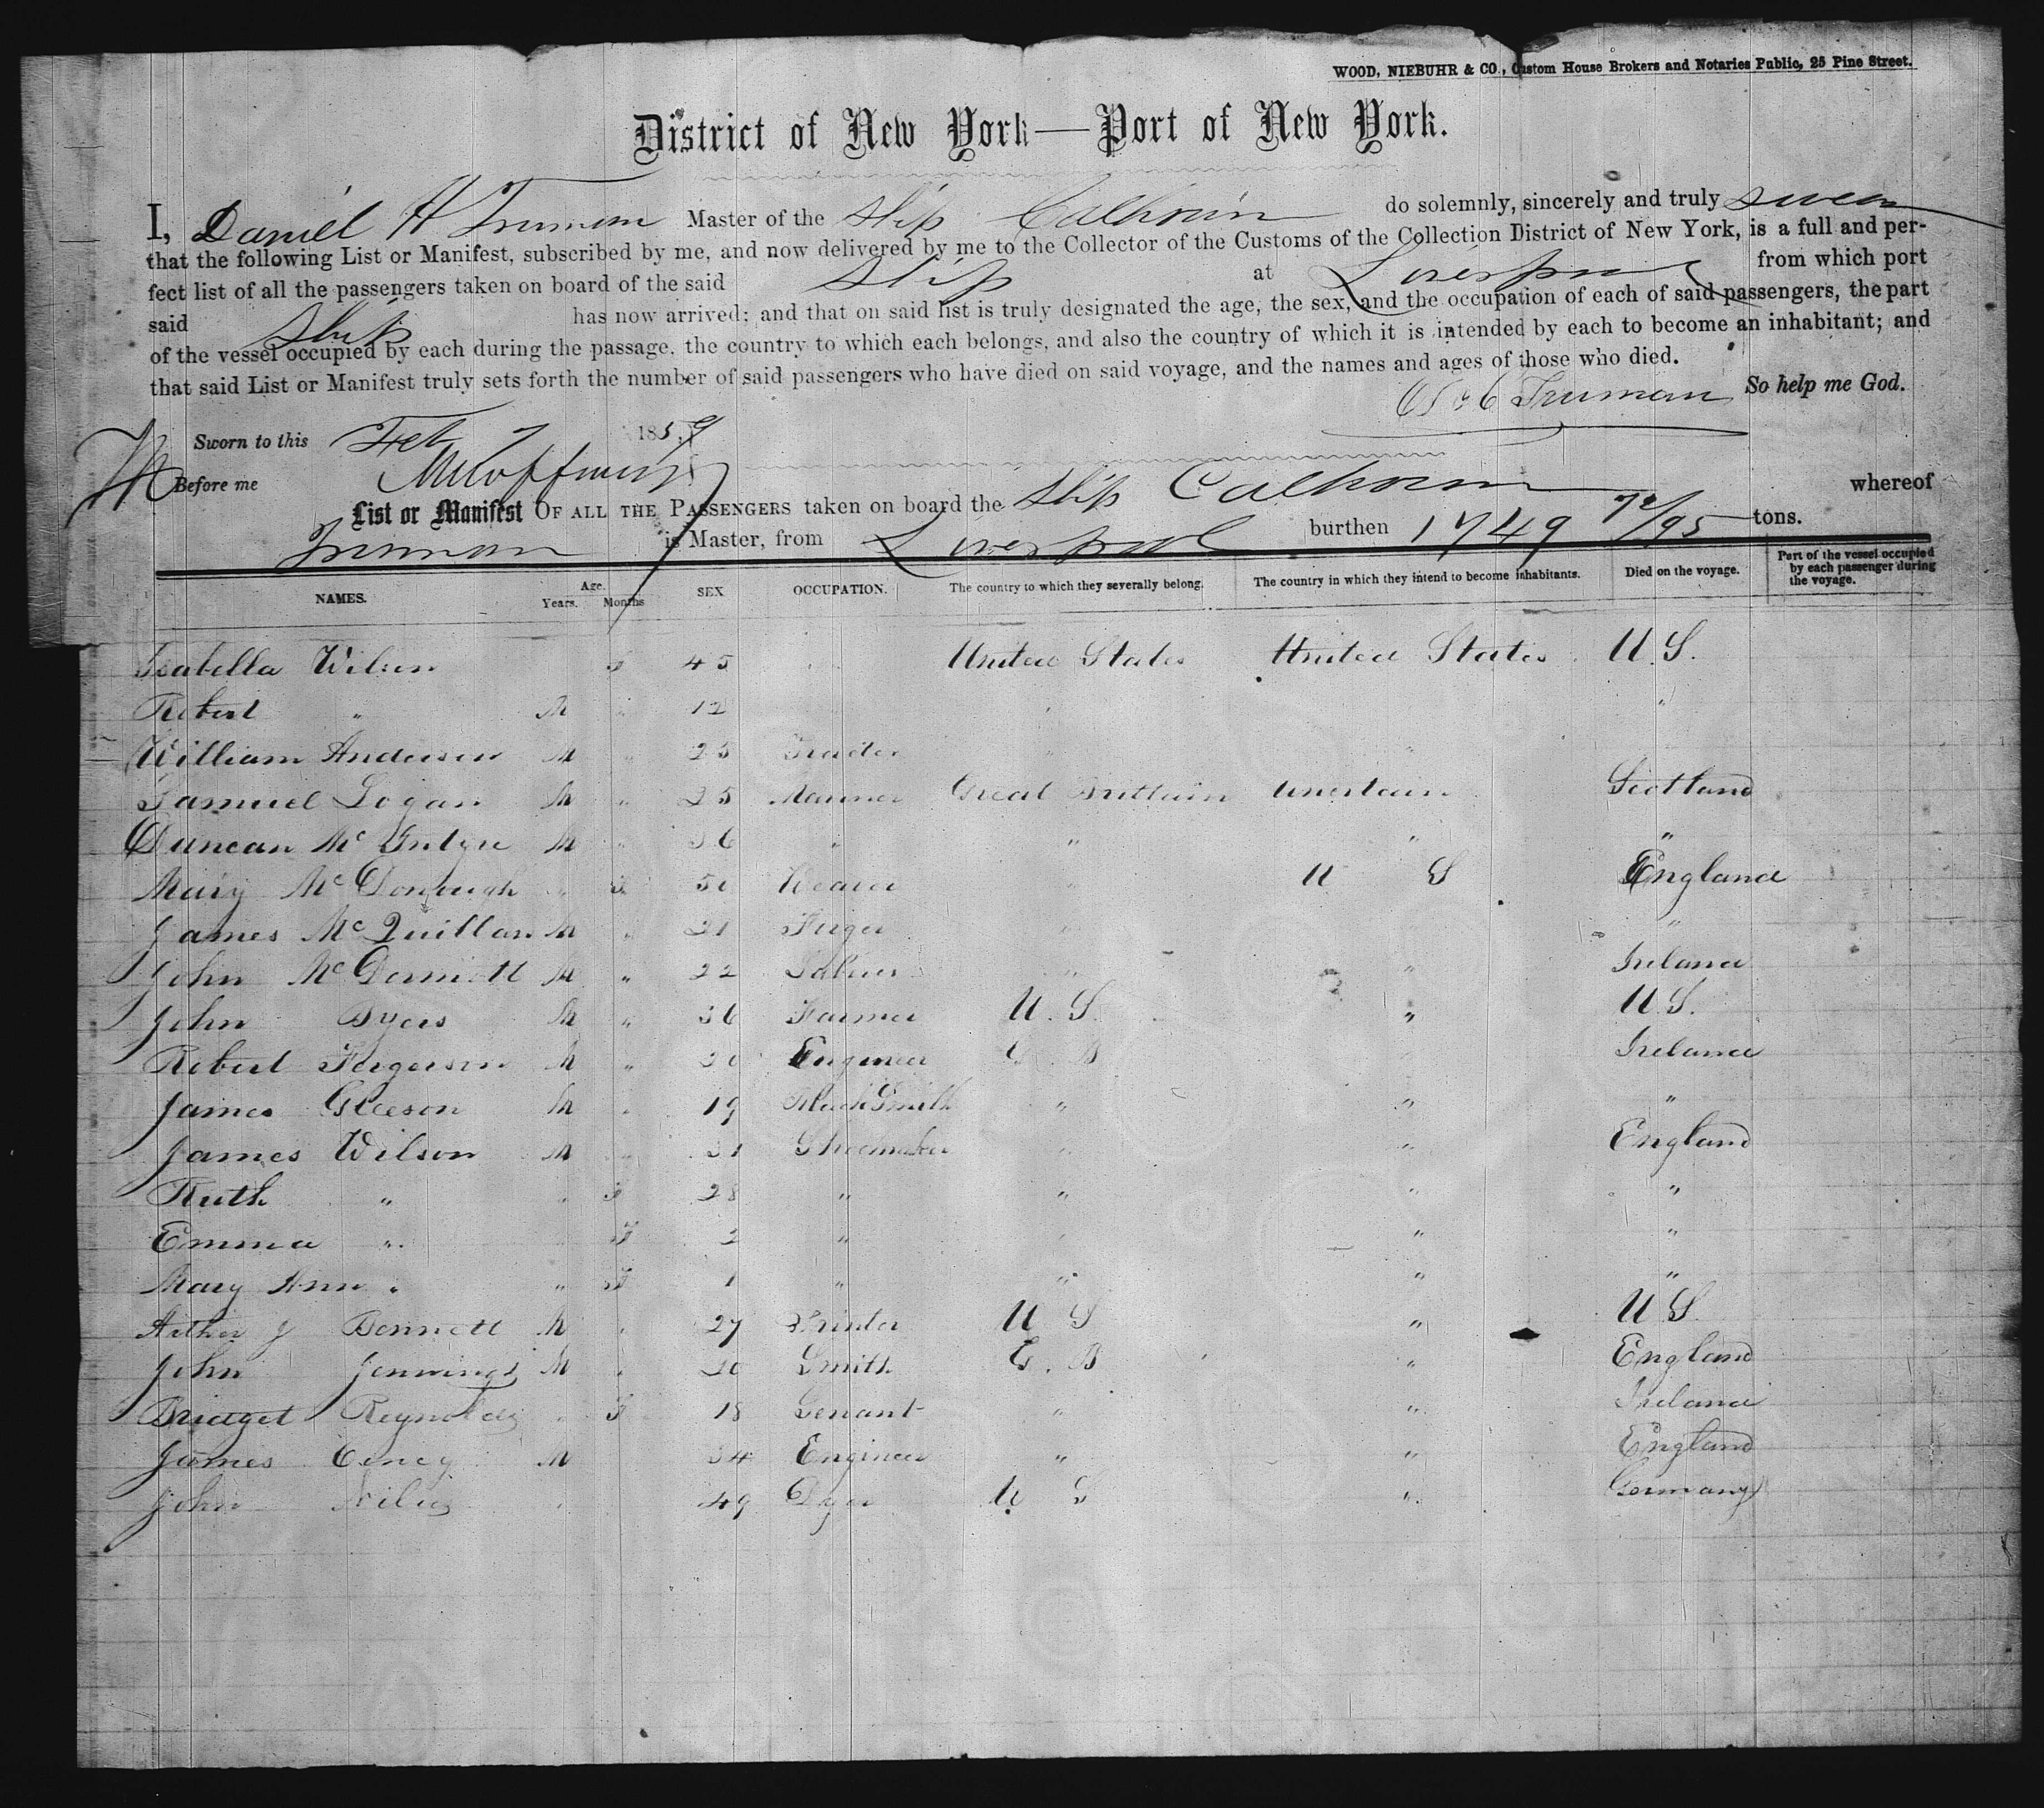 WOOD, NIEBUHR & CO., Custom House Brokers and Notaries Public, 25 Pine Street.
District of New York—Port of New York.
I, Daniel H Truman Master of the Ship Calhoun do solemnly, sincerely and truly swear
that the following List or Manifest, subscribed by me, and now delivered by me to the Collector of the Customs of the Collection District of New York, is a full and per-
fect list of all the passengers taken on board of the said Ship at Liverpool from which port
said Ship has now arrived; and that on said list is truly designated the age, the sex, and the occupation of each of said passengers, the part
of the vessel occupied by each during the passage, the country to which each belongs, and also the country of which it is intended by each to become an inhabitant; and
that said List or Manifest truly sets forth the number of said passengers who have died on said voyage, and the names and ages of those who died.
Truman So help me God.
Sworn to this Feb 7 1859
Before me
List or Manifest OF ALL THE PASSENGERS taken on board the Ship Calhoun whereof
Truman is Master, from Liverpool burthen 1749 72/95 tons.
NAMES. Age. Years. Months SEX OCCUPATION. The country to which they severally belong. The country in which they intend to become inhabitants. Died on the voyage. Part of the vessel occupied by each passenger during the voyage.
Isabella Wilson F 45 United States United States U.S.
Robert " M " 12 "
William Anderson M " 25 "
Samuel Logan M " 25 Mariner Great Brittain Uncertain Scotland
Duncan McIntyre M " 36 " " " "
Mary McDonough " F 50 Weaver " U S England
James McQuillan M " 21 " "
John McDermott M " 22 " " Ireland
John Byers M " 36 Farmer U.S. " U.S.
Robert Fergerson M " 20 Engineer G B " Ireland
James Gleeson M " 19 BlackSmith " " "
James Wilson M " 31 Shoemaker " " England
Ruth " " F 28 " " " "
Emma " F 2 " " " "
Mary Ann " " F 1 " " " "
Arthur J Bennett M " 27 Printer U S " U S.
John Jennings M " 20 Smith G. B " England
Bridget Reynolds " F 18 Servant " " Ireland
James M 34 Engineer " " England
John 49 Dyer U S " Germany